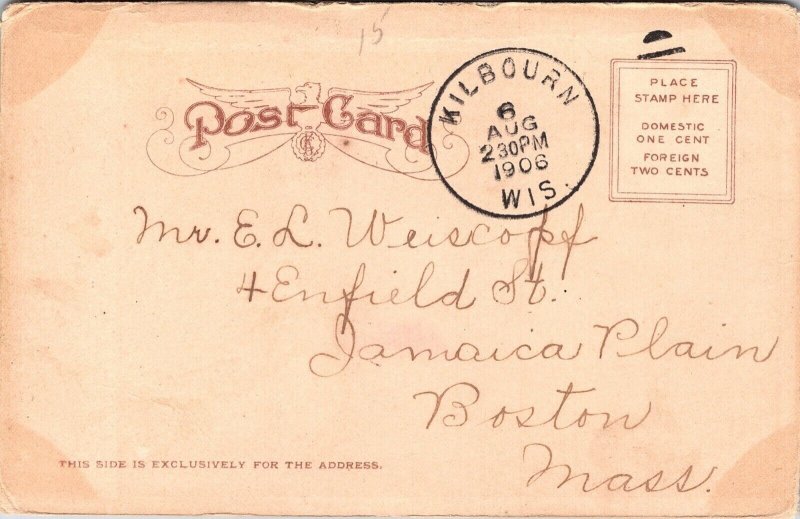 15
Post Card
KILBOURN
6
AUG
2 30PM
1906
WIS.
PLACE
STAMP HERE
DOMESTIC
ONE CENT
FOREIGN
TWO CENTS
Mr. E. L. Weiscopf
4 Enfield St.
Jamaica Plain
Boston
Mass.
THIS SIDE IS EXCLUSIVELY FOR THE ADDRESS.